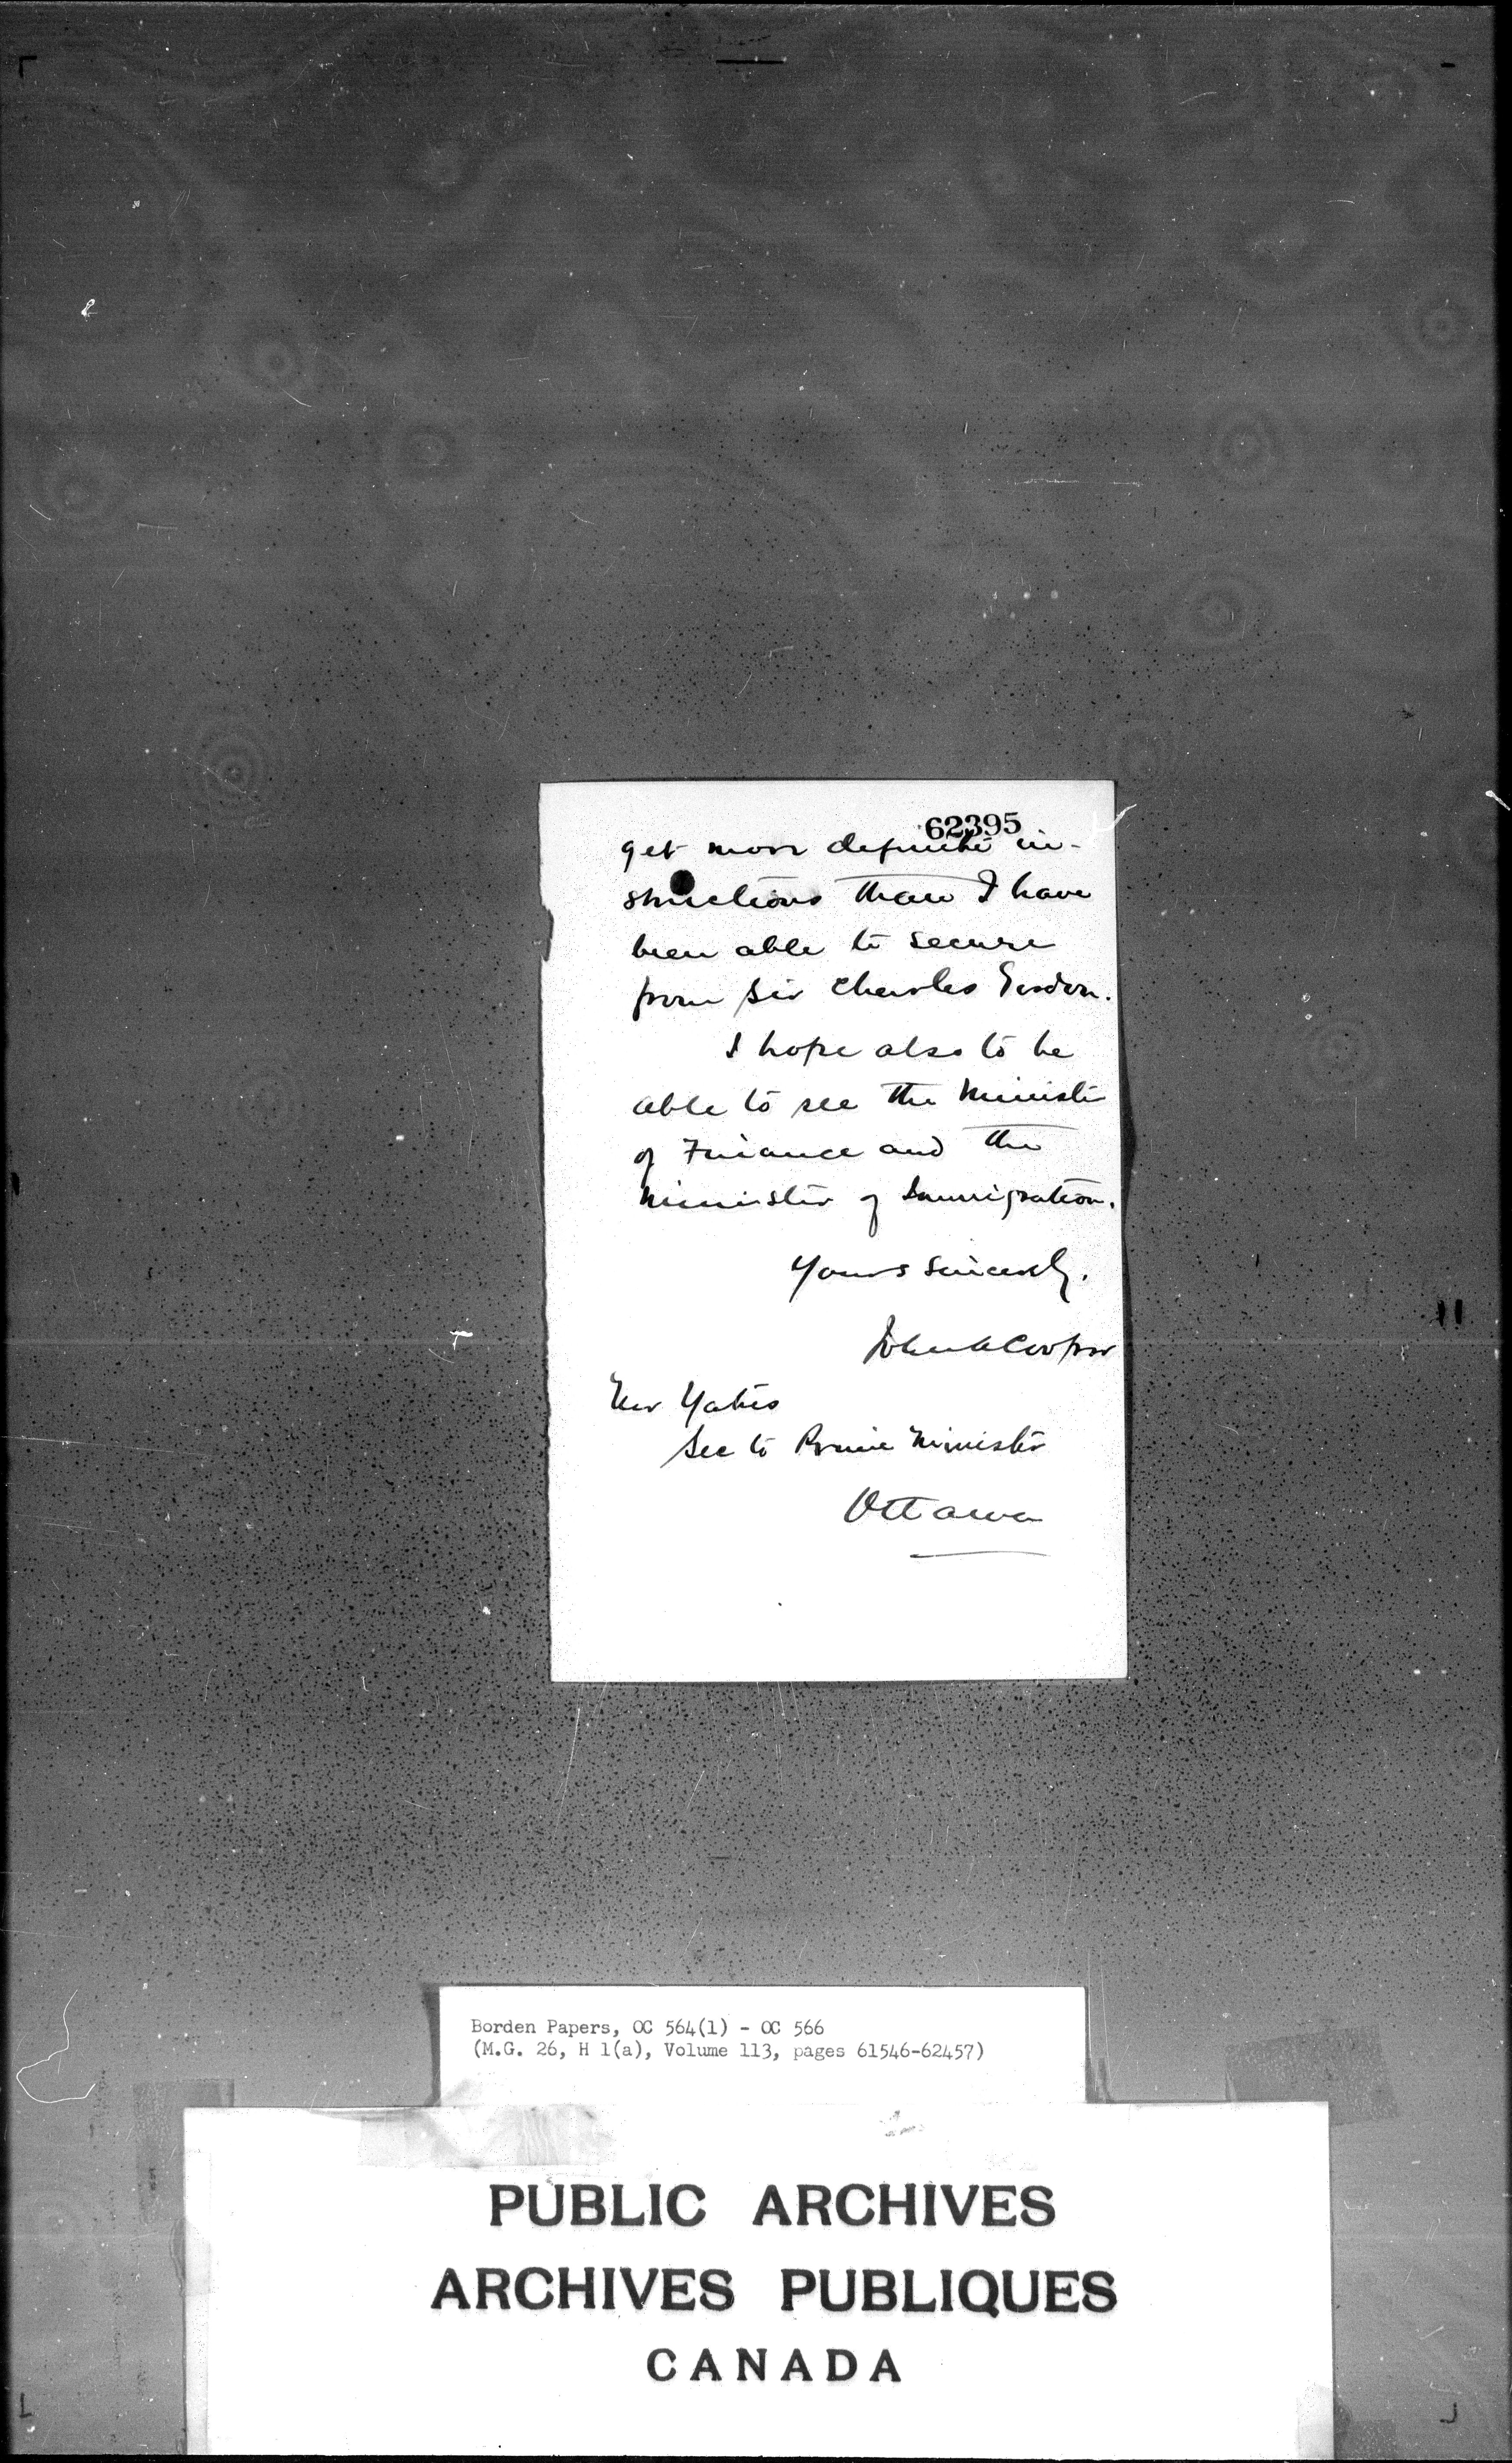 62395
get more definite in-
structions than I have
been able to secure
from Sir Charles Gordon.
I hope also to be
able to see the Minister
of Finance and the
Minister of Immigration.
Yours sincerely,
John A Cooper
Mr Yates
Sec to Prime Minister
Ottawa
Borden Papers, OC 564(1) - OC 566
(M.G. 26, H 1(a), Volume 113, pages 61546-62457)
PUBLIC ARCHIVES
ARCHIVES PUBLIQUES
CANADA